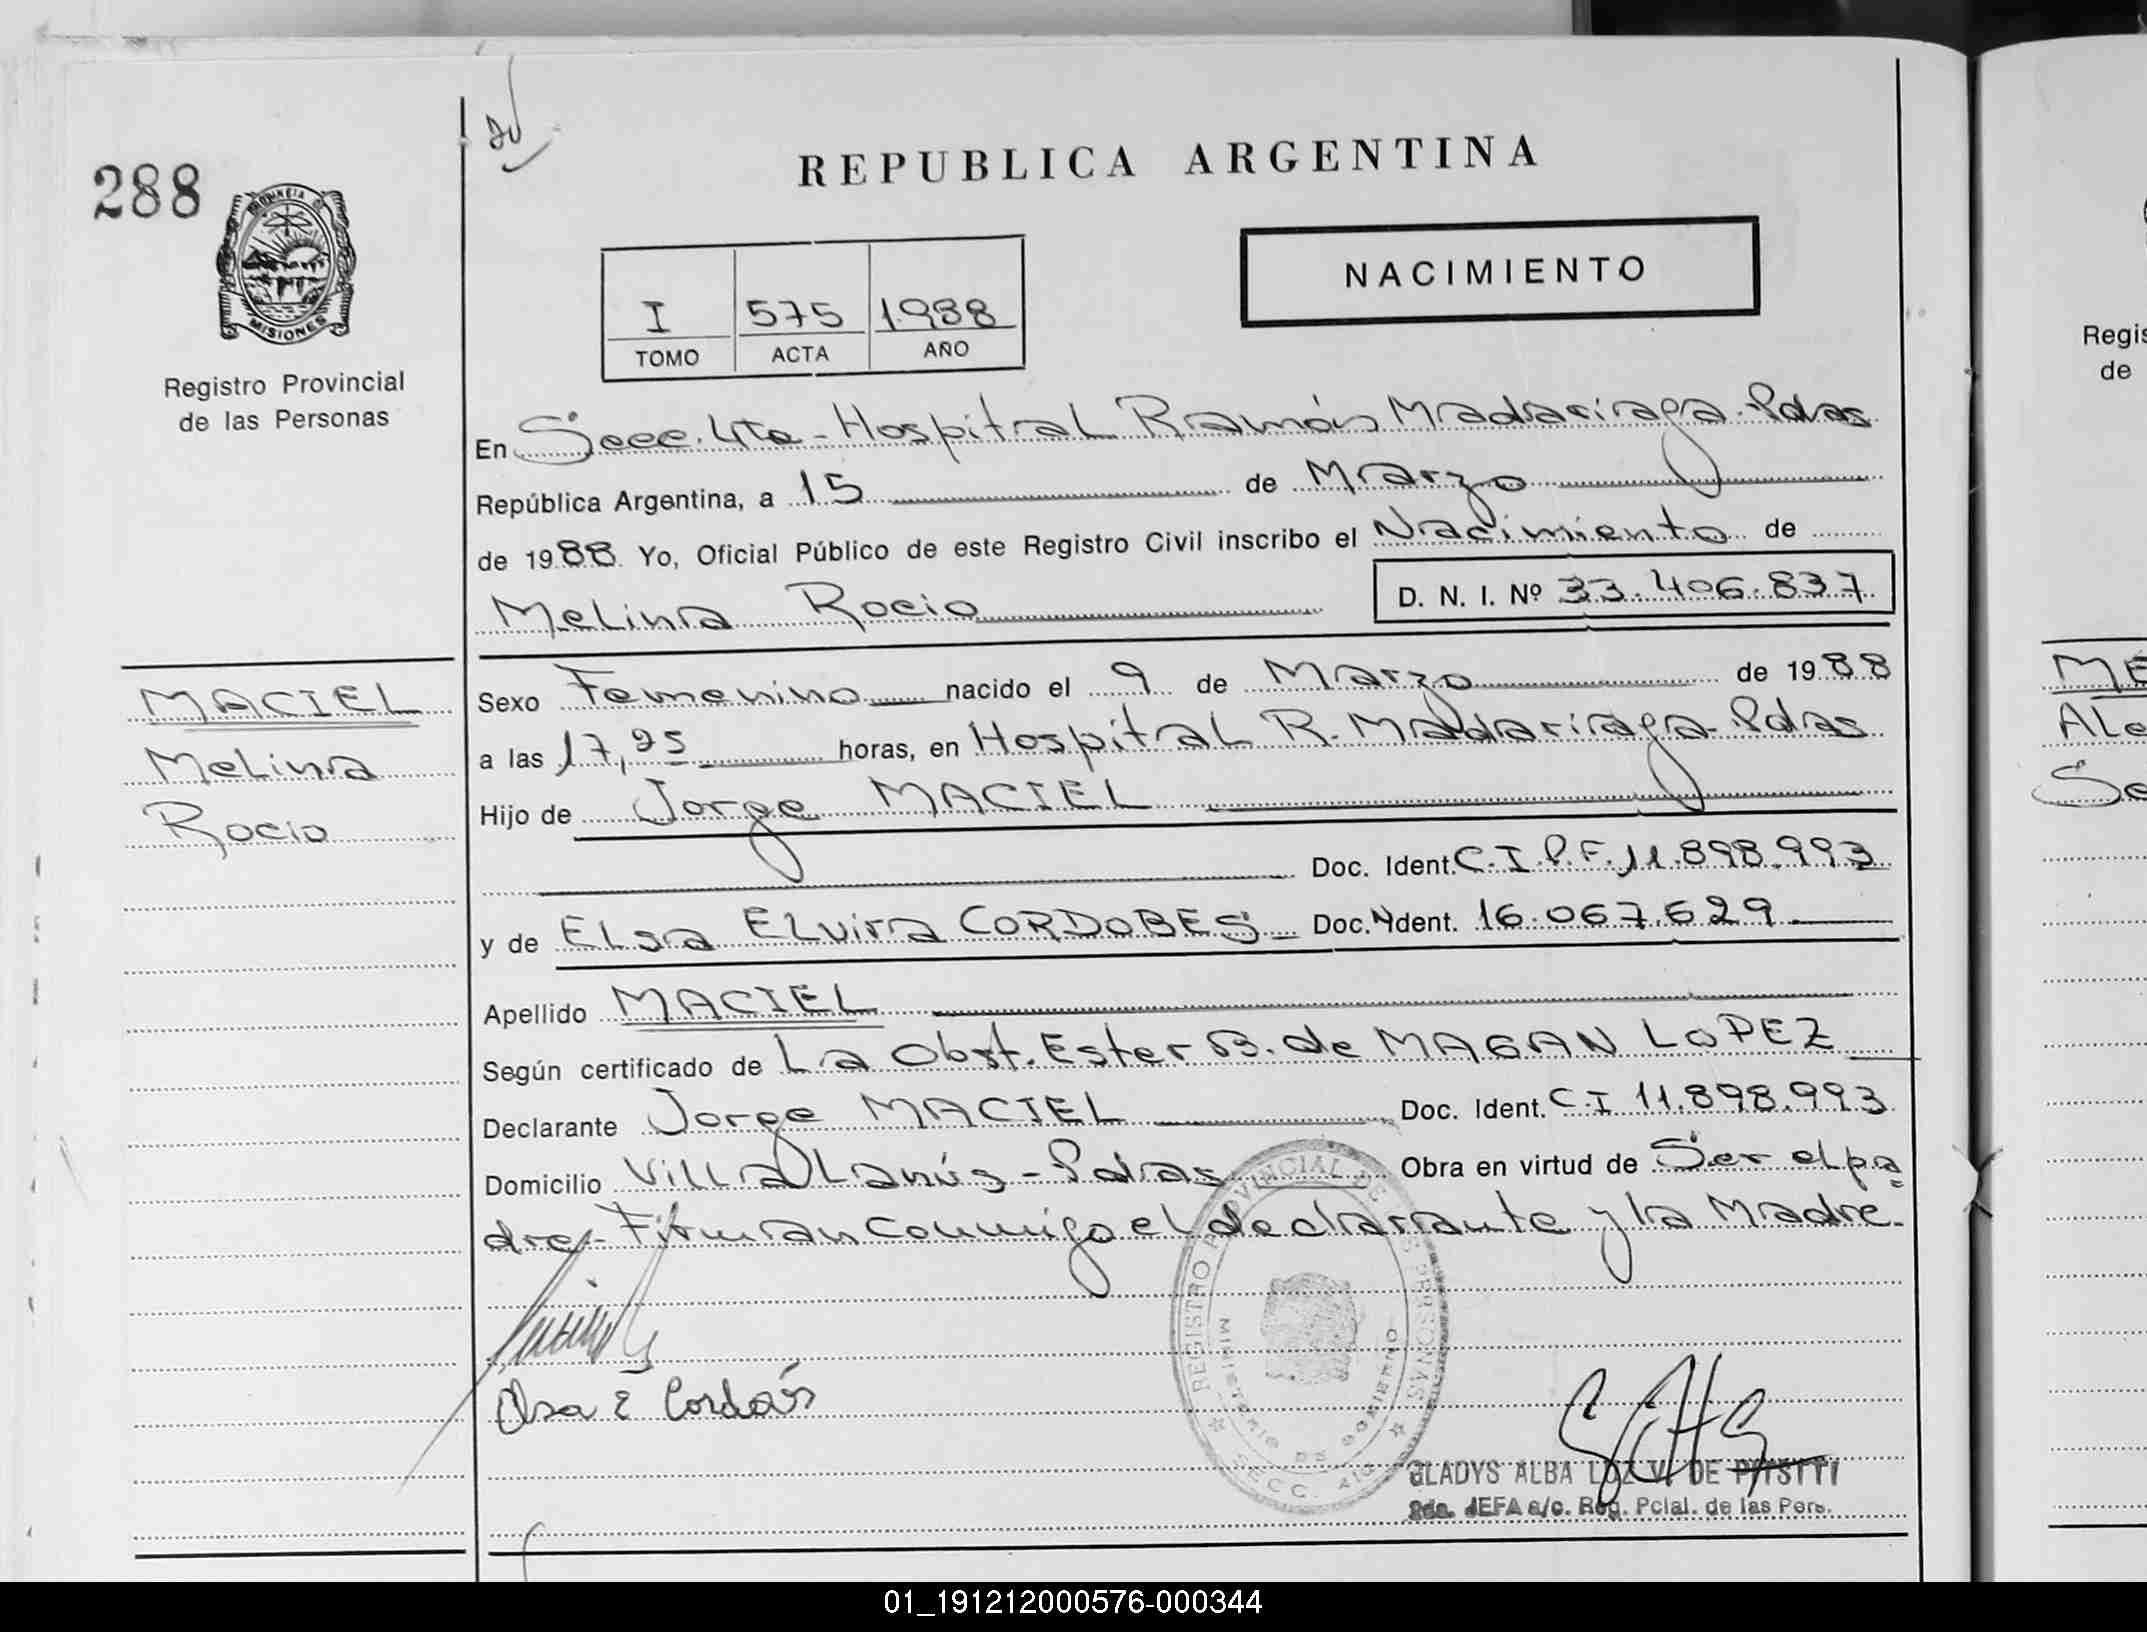 288
PROVINCIA DE
MISIONES
Registro Provincial
de las Personas
REPUBLICA ARGENTINA
NACIMIENTO
I 575 1.988
TOMO ACTA AÑO
En Secc. 4ta - Hospital Ramón Madariaga - Pdas
República Argentina, a 15 de Marzo
de 1988 Yo, Oficial Público de este Registro Civil inscribo el Nacimiento de
Melina Rocio D. N. I. Nº 33.406.837
MACIEL
Melina
Rocio
Sexo Femenino nacido el 9 de Marzo de 1988
a las 17,25 horas, en Hospital R. Madariaga - Pdas
Hijo de Jorge MACIEL
Doc. Ident. C.I.P.F. 11.898.993
y de Elsa Elvira CORDOBES - Doc. Ident. 16.067.629
Apellido MACIEL
Según certificado de La Obst. Ester B. de MAGAN LOPEZ
Declarante Jorge MACIEL Doc. Ident. C.I 11.898.993
Domicilio Villa Lanús - Pdas Obra en virtud de Ser el pa
dre - Firman conmigo el declarante y la Madre.
REGISTRO PROVINCIAL DE LAS PERSONAS
MINISTERIO DE GOBIERNO
SECC. 4ta
GLADYS ALBA LUZ V. DE
2da. JEFA a/c. Reg. Pcial. de las Pers.
Regis
de
ME
Ale
Se
01_191212000576-000344